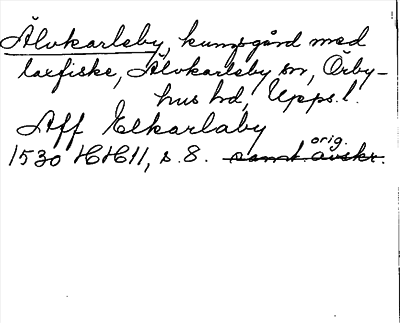 Älvkarleby, kungsgård med
laxfiske, Älvkarleby sn, Örby-
hus hd, Upps.l.
Aff Elkarlaby
orig.
1530 HH 11, s. 8. samt. avskr.